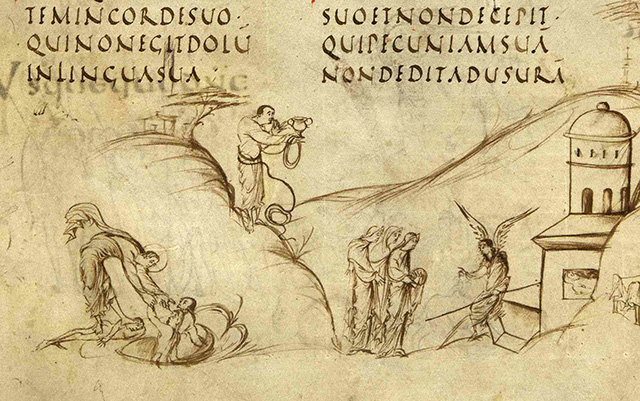 TEMINCORDESUO
·QUINONEGITDOLŪ
INLINGUASUA·
SUOETNONDECEPIT·
QUIPECUNIAMSUĀ
NONDEDITADUSURĀ